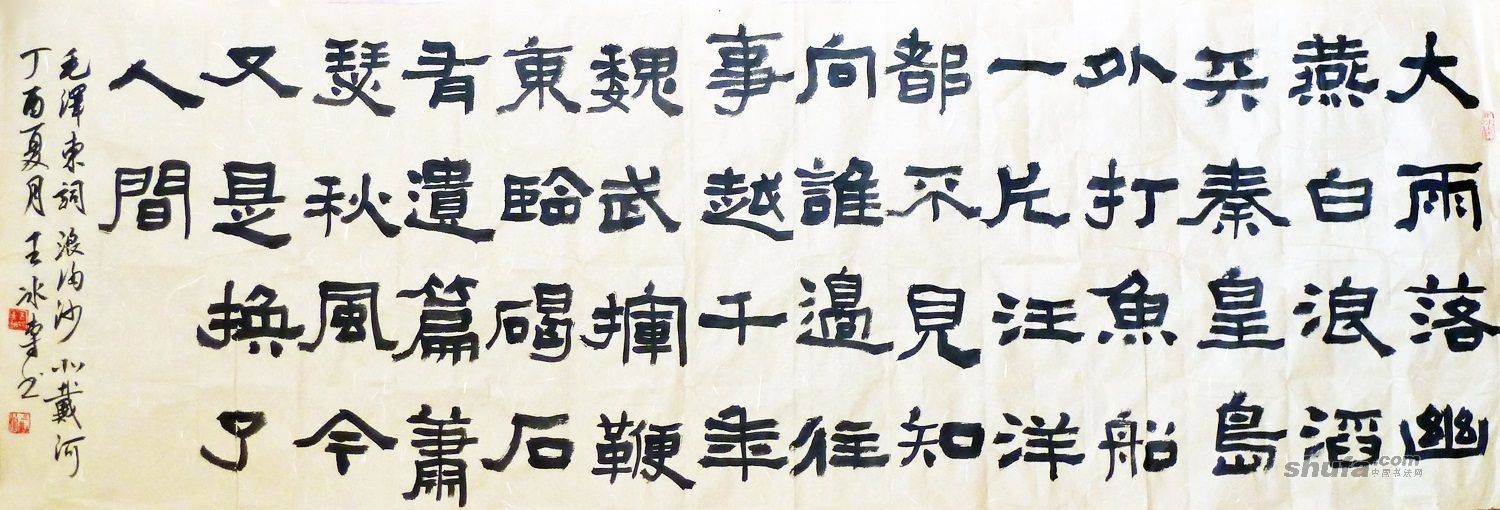 大雨落幽
燕白浪滔
天秦皇島
外打魚船
一片汪洋
都不見知
向誰邊往
事越千年
魏武揮鞭
東臨碣石
有遺篇蕭
瑟秋風今
又是換了
人間
毛澤東詞 浪淘沙 北戴河
丁酉夏月 王冰书
shufa.com
中国书法网